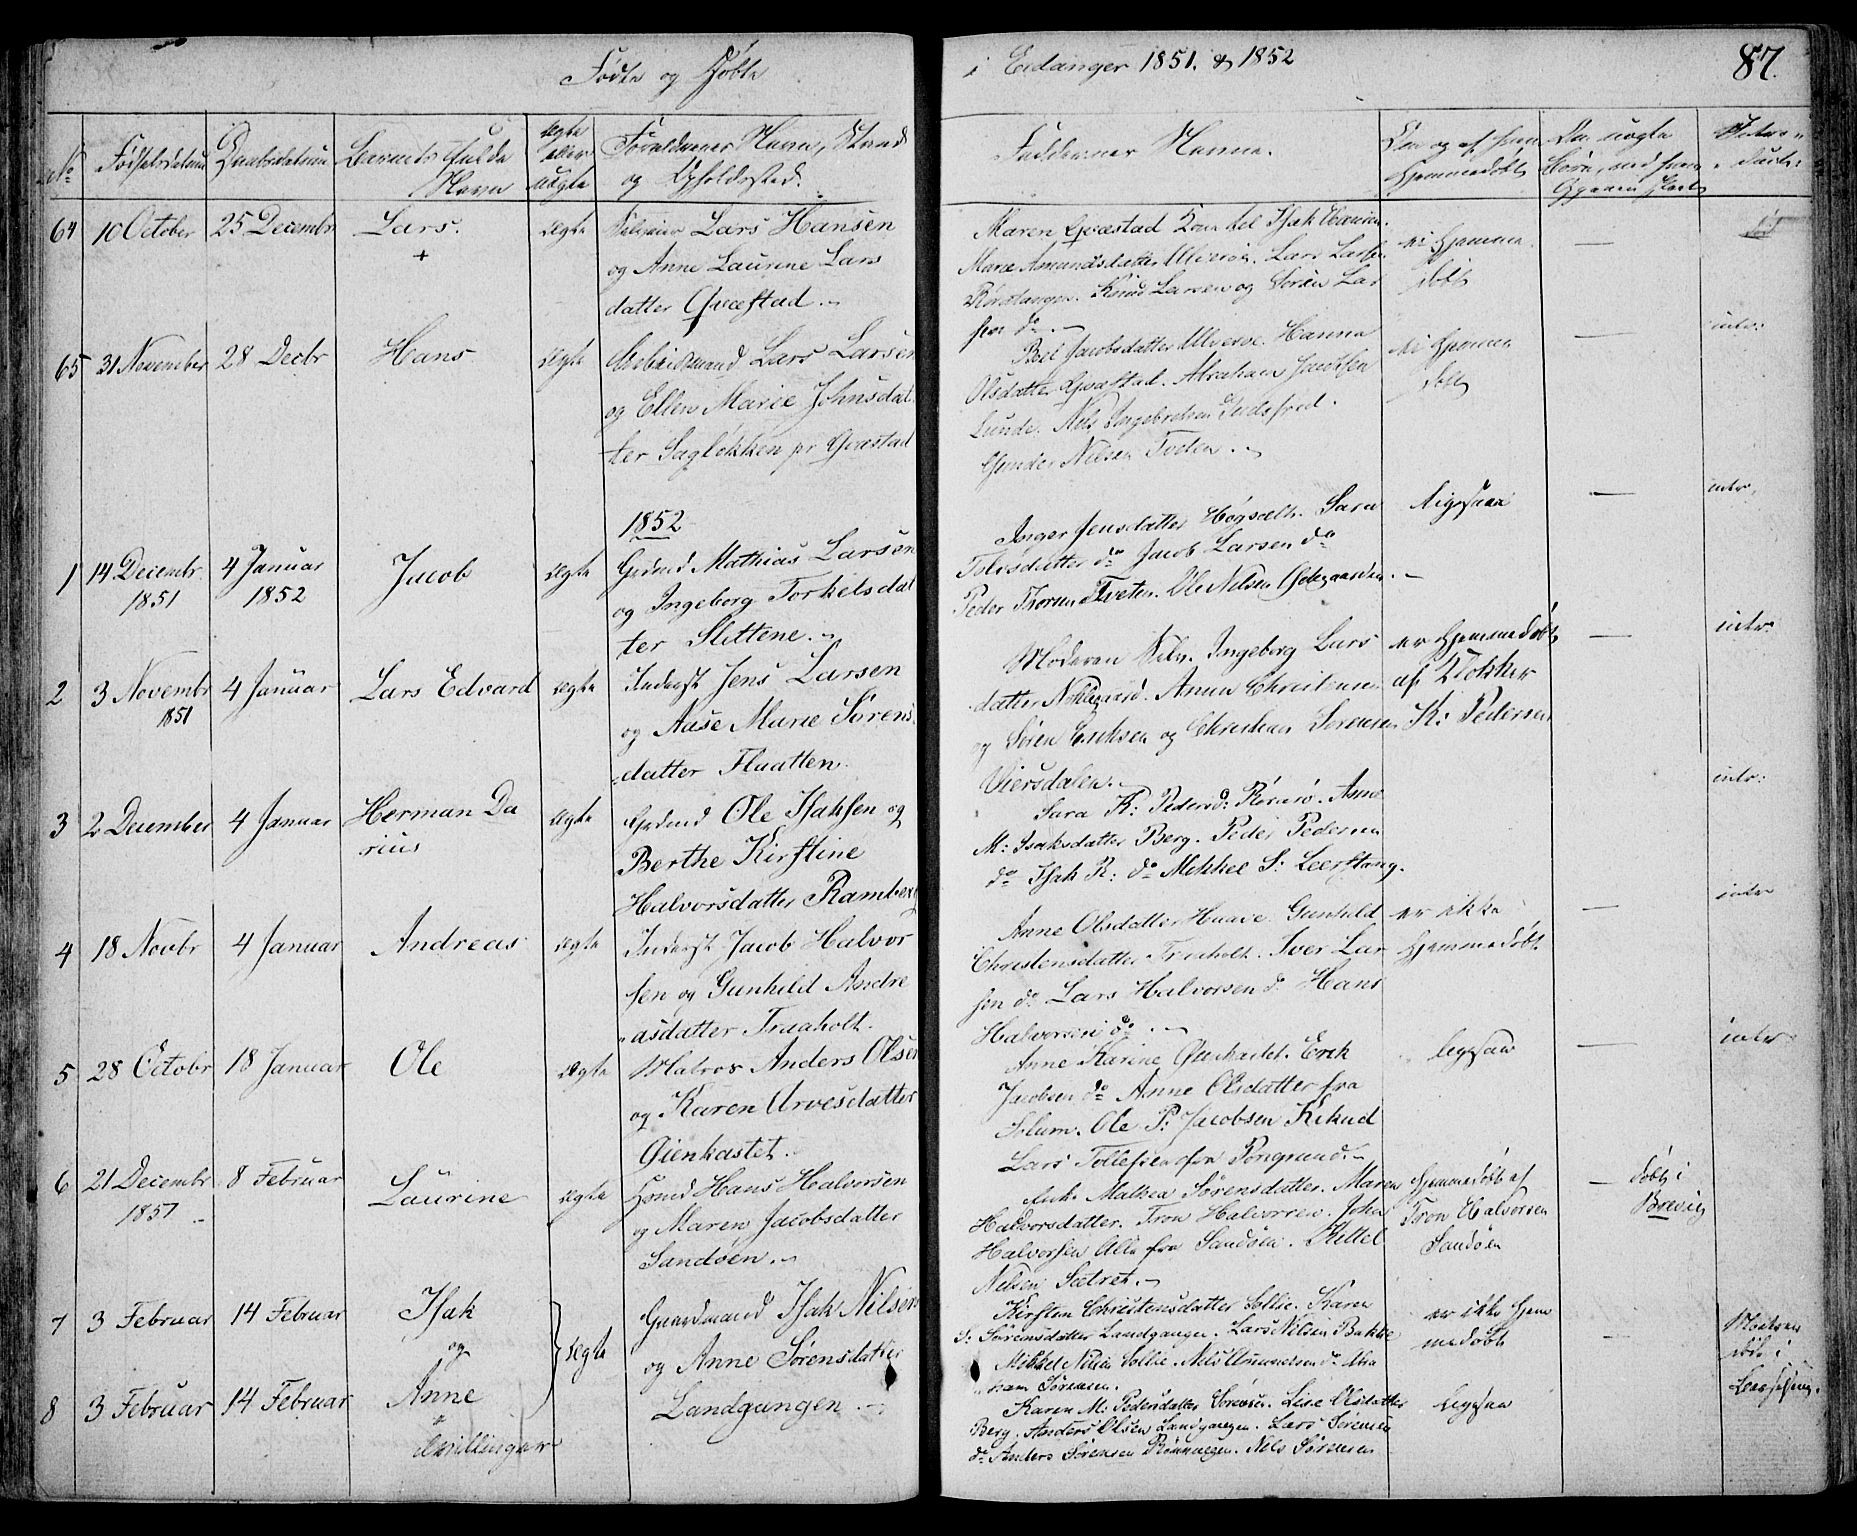 Fødte og Døbte
i Eidanger 1851. & 1852
87.
No
Fødselsdatum
Daabsdatum
Barnets fulde
Navn
ægte
eller
uægte
Forældrenes Navn, Stand
og Opholdssted.
Faddernes Navne.
Om og af hvem
Hjemmedøbt
64 10 October 25 Decembr Lars. ægte
+
Lars Hansen
og Anne Laurine Lars
datter Qvæstad.
Maren Qvæstad
Marie Amundsdatter Lars Lar
Knud Larsen og Søren Lar
sen do
ei Hjemme
døbt
—
65 31 November 28 Decbr Hans ægte
Arbeidsmand Lars Larsen
og Ellen Marie Johnsdat
ter Sagløkken pr Qvæstad
Jacobsdatter Hanna
Olsdatter Qvæstad. Abraham Jacobsen
Lunde. Nils Ingebretsen
Nilsen Tveten.
ei Hjemme
døbt
—
intr:
1852
1 14 Decembr 4 Januar Jacob ægte
1851 1852
Grdmd Mathias Larsen
og Ingeborg Torkelsdat
ter Slettene.
Inger Jensdatter Høgsæth. Sara
Tolvsdatter do Jacob Larsen do
Peder Thorsen Tveten. Ole Nilsen
ligesaa
—
intr.
2 3 Novembr 4 Januar Lars Edvard ægte
1851
Inderst Jens Larsen
og Aase Marie Sørens
datter Flaatten.
Moderen selv. Ingeborg Lars
datter
og Søren og Christian Sørensen
Viersdalen.
er Hjemmedøbt
af Klokker
K: Pedersen
—
intr:
3 2 December 4 Januar Herman Da ægte
rius
Grdmd Ole Isaksen og
Berthe Kirstine
Halvorsdatter Ramberg
Sara K: Pedersd: Anne
M: Isaksdatter Berg. Peder Pedersen
do Isak R: do Mikkel S: Leerstang.
intr:
4 18 Novbr 4 Januar Andreas ægte
Inderst Jacob Halvor
sen og Gunhild Andre
asdatter Traaholt.
Anne Olsdatter Gunhild
Christensdatter Traaholt. Iver Lar
sen do Lars Halvorsen do Hans
Halvorsen do
er ikke
Hjemmedøbt
—
intr
5 28 Octobr 18 Januar Ole ægte
Matros Anders Olsen
og Karen
Øienkastet.
Anne Karine Øienkastet. Erik
Jacobsen do Anne Olsdatter fra
Solum. Ole P: Jacobsen
Lars Tollefsen fra Porsgrund.
ligesaa
—
intr
6 21 Decembr 8 Februar Laurine ægte
1851
Hans Halvorsen
og Maren Jacobsdatter
Sandøen.
Mathea Sørensdatter. Maren
Halvorsdatter. Tron Halvorsen. John
Halvorsen Alle fra Sandøen. Kittel
Nilsen Sætret.
Hjemmedøbt af
Tron Halvorsen
Sandøen
—
døbt i
Brevig
7 3 Februar 14 Februar Isak
og
ægte
Gaardmand Isak Nilsen
og Anne Sørensdatter
Landgangen.
Kirsten Christensdatter Karen
S: Sørensdatter Landgangen. Lars Nilsen Bakke
Mikkel Nilsen Nils do Abra
ham Sørensen.
er ikke Hjem
medøbt
—
Moderen
døde i
Barselseng.
8 3 Februar 14 Februar Anne
Tvillinger
Karen M: Pedersdatter Lise Olsdatter
Berg. Anders Olsen Landgangen. Lars Sørensen
do Anders Sørensen Nils Sørensen
ligesaa